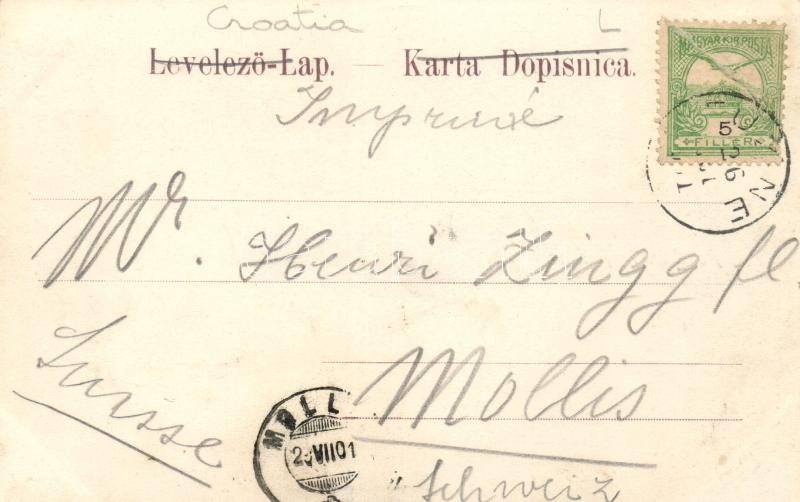 Croatia L
Levelező-Lap. — Karta Dopisnica.
Imprimé
MAGYAR KIR. POSTA
5
FILLÉR
Mr. Henri Zingg fl.
Mollis
Suisse
Schweiz
MOLL
VII 01